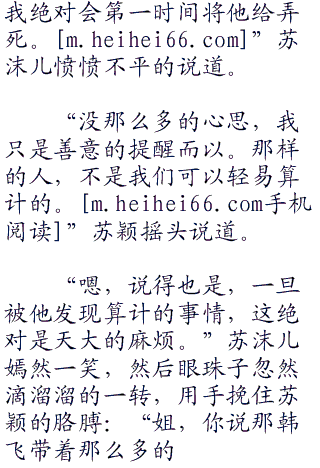 我绝对会第一时间将他给弄
死。[m.heihei66.com]”苏
沫儿愤愤不平的说道。
“没那么多的心思，我
只是善意的提醒而以。那样
的人，不是我们可以轻易算
计的。[m.heihei66.com手机
阅读]”苏颖摇头说道。
“嗯，说得也是，一旦
被他发现算计的事情，这绝
对是天大的麻烦。”苏沫儿
嫣然一笑，然后眼珠子忽然
滴溜溜的一转，用手挽住苏
颖的胳膊：“姐，你说那韩
飞带着那么多的